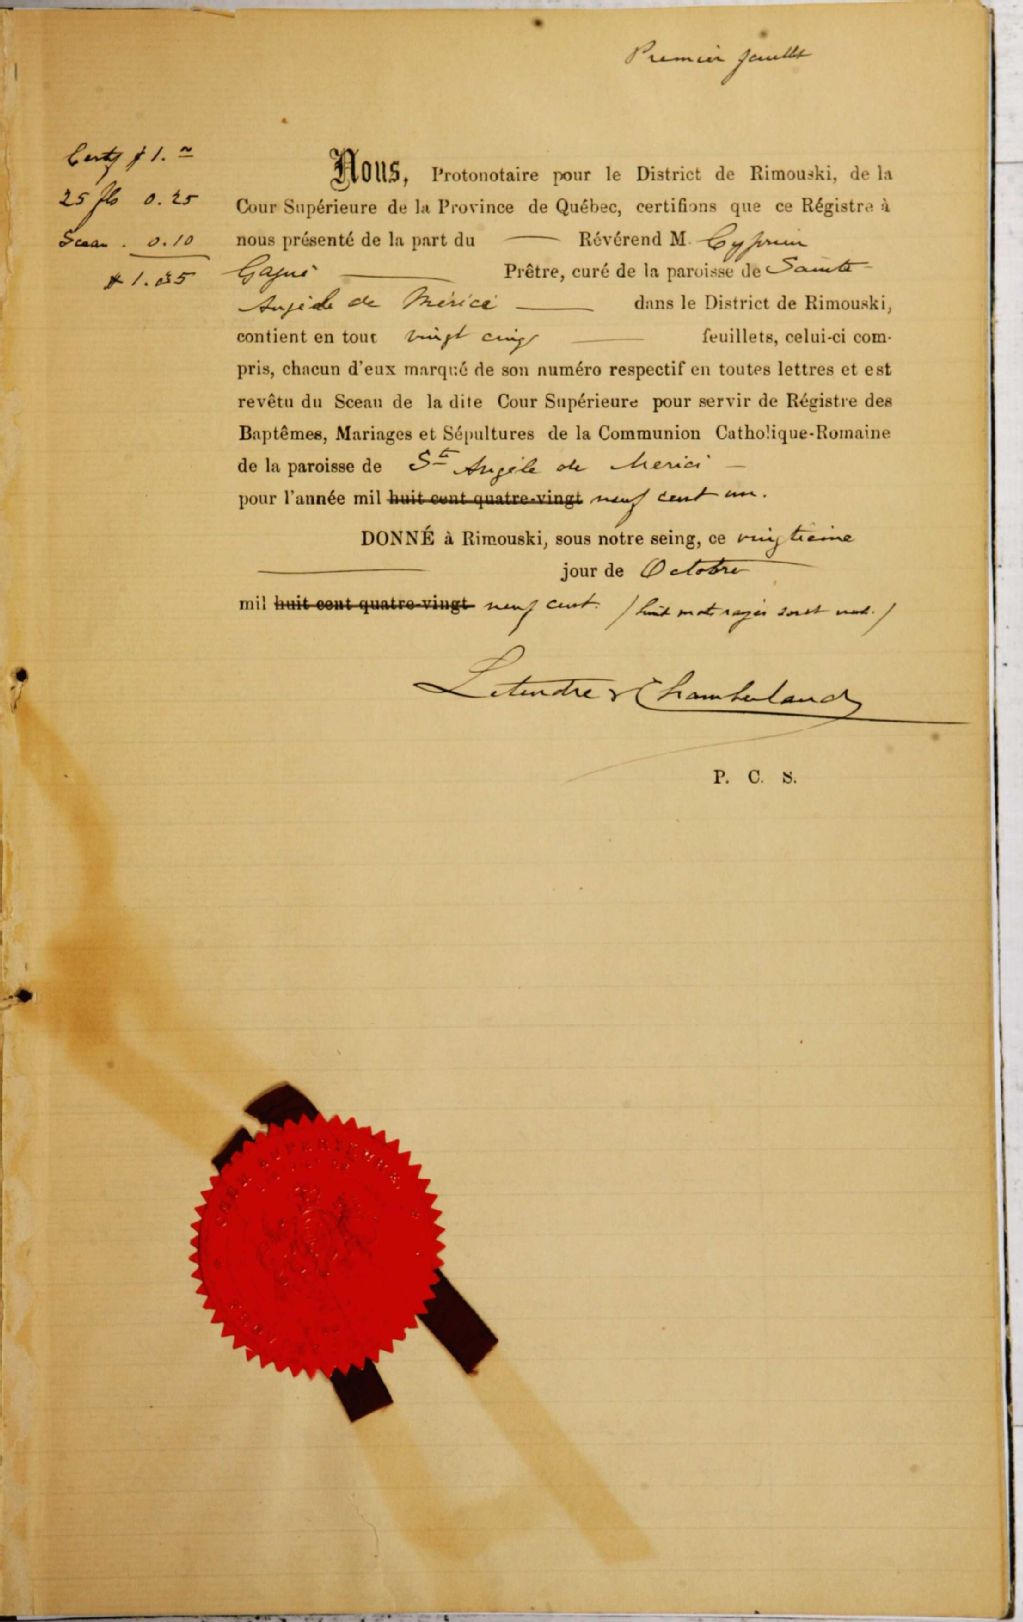 Premier feuillet
Certf $1.00
25 fts 0.25
Sceau . 0.10
$1.35
Nous, Protonotaire pour le District de Rimouski, de la
Cour Supérieure de la Province de Québec, certifions que ce Régistre à
nous présenté de la part du —— Révérend M. Cyprien
Gagné —— Prêtre, curé de la paroisse de Sainte-
Angèle de Mérici —— dans le District de Rimouski,
contient en tout vingt cinq —— feuillets, celui-ci com-
pris, chacun d'eux marqué de son numéro respectif en toutes lettres et est
revêtu du Sceau de la dite Cour Supérieure pour servir de Régistre des
Baptêmes, Mariages et Sépultures de la Communion Catholique-Romaine
de la paroisse de Ste Angèle de Merici —
pour l'année mil huit cent quatre-vingt neuf cent un.
DONNÉ à Rimouski, sous notre seing, ce vingtieme
—— jour de Octobre
mil huit cent quatre-vingt neuf cent. / huit mots rayés sont nuls. /
Letendre & Chamberland
P. C. S.
COUR SUPERIEURE